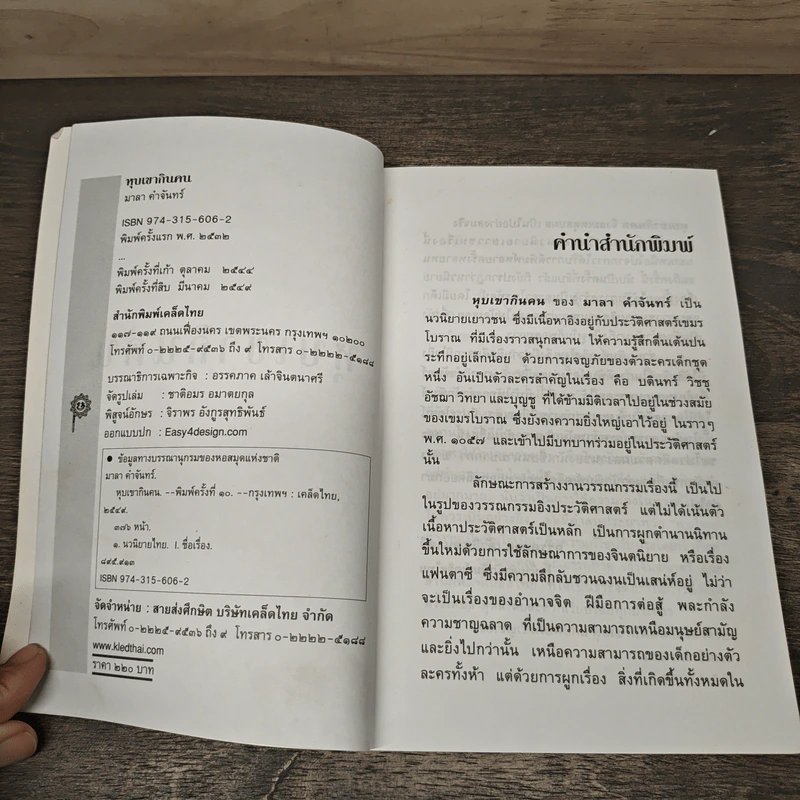 หุบเขากินคน
มาลา คำจันทร์
ISBN 974-315-606-2
พิมพ์ครั้งแรก พ.ศ. ๒๕๓๒
...
พิมพ์ครั้งที่เก้า ตุลาคม ๒๕๔๔
พิมพ์ครั้งที่สิบ มีนาคม ๒๕๔๙
สำนักพิมพ์เคล็ดไทย
๑๑๗-๑๑๙ ถนนเฟื่องนคร เขตพระนคร กรุงเทพฯ ๑๐๒๐๐
โทรศัพท์ ๐-๒๒๒๕-๙๕๓๖ ถึง ๙ โทรสาร ๐-๒๒๒๒-๕๑๘๘
บรรณาธิการเฉพาะกิจ : อรรคภาค เล้าจินตนาศรี
จัดรูปเล่ม : ชาติอมร อมาตยกุล
พิสูจน์อักษร : จิราพร อังกูรสุทธิพันธ์
ออกแบบปก : Easy4design.com
● ข้อมูลทางบรรณานุกรมของหอสมุดแห่งชาติ
มาลา คำจันทร์.
หุบเขากินคน. --พิมพ์ครั้งที่ ๑๐. --กรุงเทพฯ : เคล็ดไทย,
๒๕๔๙.
๓๗๖ หน้า.
๑. นวนิยายไทย. I. ชื่อเรื่อง.
๘๙๕.๙๑๓
ISBN 974-315-606-2
จัดจำหน่าย : สายส่งศึกษิต บริษัทเคล็ดไทย จำกัด
โทรศัพท์ ๐-๒๒๒๕-๙๕๓๖ ถึง ๙ โทรสาร ๐-๒๒๒๒-๕๑๘๘
www.kledthai.com
ราคา ๒๒๐ บาท
คำนำสำนักพิมพ์
หุบเขากินคน ของ มาลา คำจันทร์ เป็น
นวนิยายเยาวชน ซึ่งมีเนื้อหาอิงอยู่กับประวัติศาสตร์เขมร
โบราณ ที่มีเรื่องราวสนุกสนาน ให้ความรู้สึกตื่นเต้นปน
ระทึกอยู่เล็กน้อย ด้วยการผจญภัยของตัวละครเด็กชุด
หนึ่ง อันเป็นตัวละครสำคัญในเรื่อง คือ บดินทร์ วิชชุ
อัชฌา วิทยา และบุญชู ที่ได้ข้ามมิติเวลาไปอยู่ในช่วงสมัย
ของเขมรโบราณ ซึ่งยังคงความยิ่งใหญ่เอาไว้อยู่ ในราวๆ
พ.ศ. ๑๐๕๗ และเข้าไปมีบทบาทร่วมอยู่ในประวัติศาสตร์
นั้น
ลักษณะการสร้างงานวรรณกรรมเรื่องนี้ เป็นไป
ในรูปของวรรณกรรมอิงประวัติศาสตร์ แต่ไม่ได้เน้นตัว
เนื้อหาประวัติศาสตร์เป็นหลัก เป็นการผูกตำนานนิทาน
ขึ้นใหม่ด้วยการใช้ลักษณาการของจินตนิยาย หรือเรื่อง
แฟนตาซี ซึ่งมีความลึกลับชวนฉงนเป็นเสน่ห์อยู่ ไม่ว่า
จะเป็นเรื่องของอำนาจจิต ฝีมือการต่อสู้ พละกำลัง
ความชาญฉลาด ที่เป็นความสามารถเหนือมนุษย์สามัญ
และยิ่งไปกว่านั้น เหนือความสามารถของเด็กอย่างตัว
ละครทั้งห้า แต่ด้วยการผูกเรื่อง สิ่งที่เกิดขึ้นทั้งหมดใน